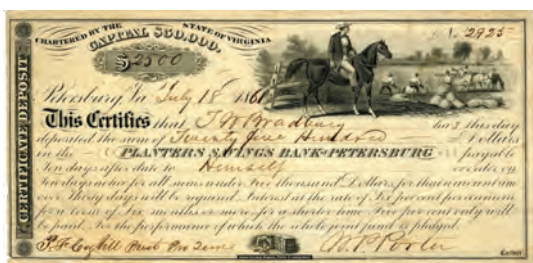 CHARTERED BY THE STATE OF VIRGINIA
CAPITAL $60,000.
No. 2925
$2500
Petersburg, Va July 18 1861
This Certifies that T W Bradbury has this day
deposited the sum of Twenty five Hundred Dollars
in the PLANTERS SAVINGS BANK OF PETERSBURG payable
Ten days after date to Himself or order, on
Ten days notice for all sums under Five thousand Dollars for than an amount
over Thirty days will be required. Interest at the rate of Six per cent per annum
for a term of Six months or more, for a shorter time, Five per cent only will
be paid. For the performance of which the whole joint fund is pledged.
Pro Tem
CERTIFICATE DEPOSIT